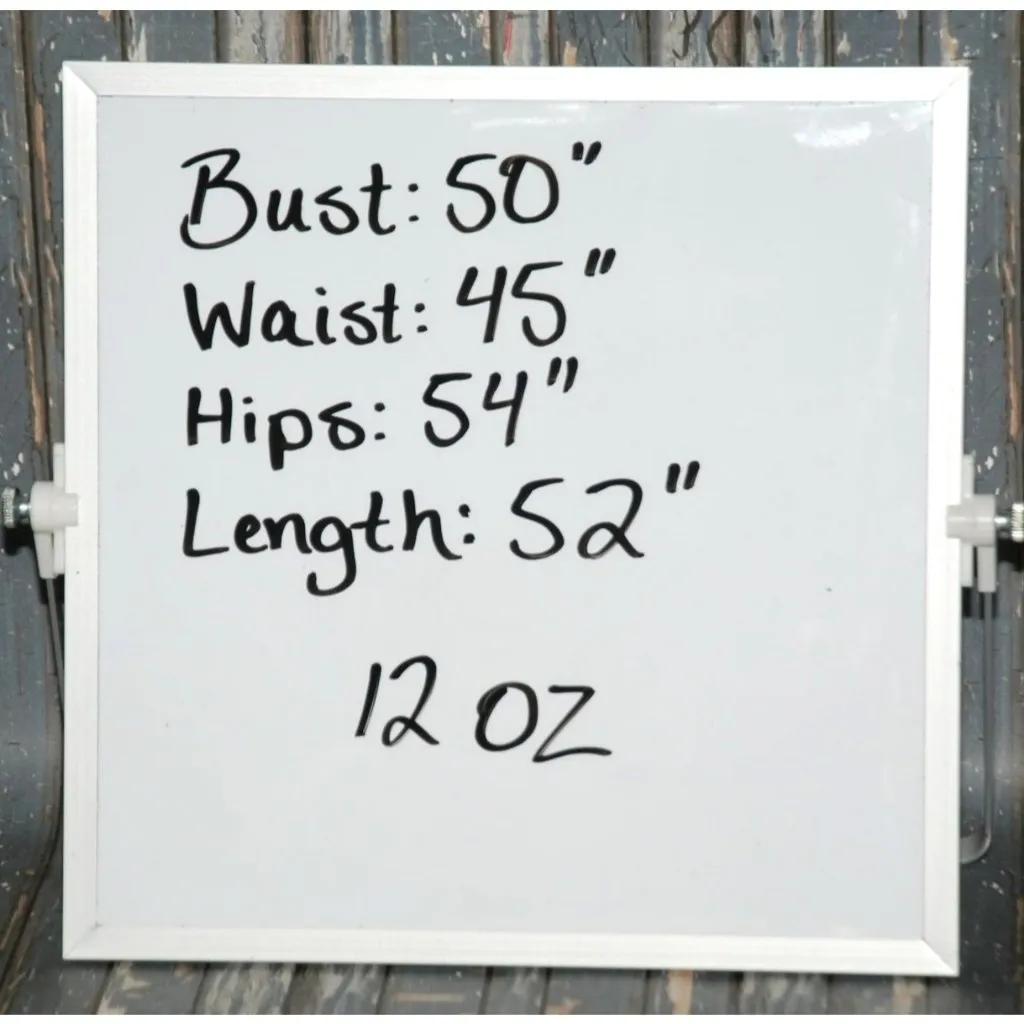 Bust: 50"
Waist: 45"
Hips: 54"
Length: 52"
12 oz